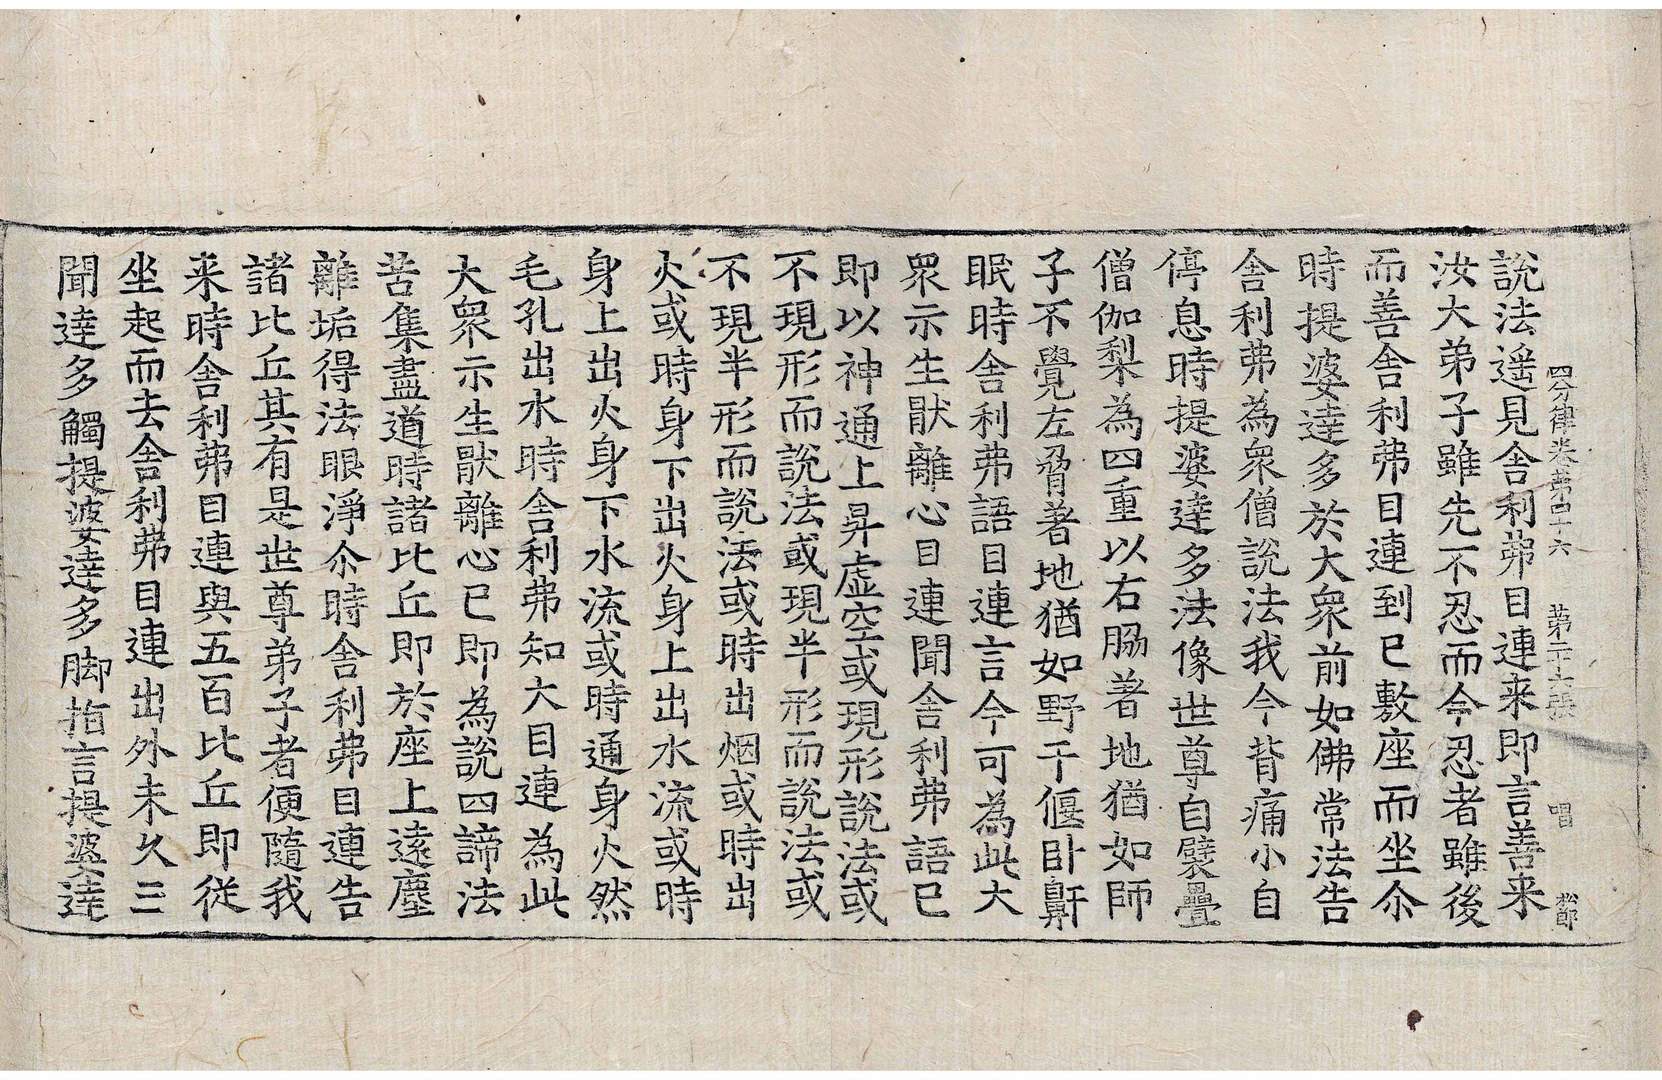 四分律卷第四十六 第二十七張 唱 松郎
說法遥見舍利弗目連来即言善来
汝大弟子雖先不忍而今忍者雖後
而善舍利弗目連到已敷座而坐尒
時提婆達多於大衆前如佛常法告
舍利弗為衆僧說法我今背痛小自
停息時提婆達多法像世尊自襞疊
僧伽梨為四重以右脇著地猶如師
子不覺左脅著地猶如野干偃卧鼾
眠時舍利弗語目連言今可為此大
衆示生猒離心目連聞舍利弗語已
即以神通上昇虛空或現形說法或
不現形而說法或現半形而說法或
不現半形而說法或時出烟或時出
火或時身下出火身上出水流或時
身上出火身下水流或時通身火然
毛孔出水時舍利弗知大目連為此
大衆示生猒離心已即為說四諦法
苦集盡道時諸比丘即於座上遠塵
離垢得法眼淨尒時舍利弗目連告
諸比丘其有是世尊弟子者便隨我
来時舍利弗目連與五百比丘即從
坐起而去舍利弗目連出外未久三
聞達多觸提婆達多脚指言提婆達